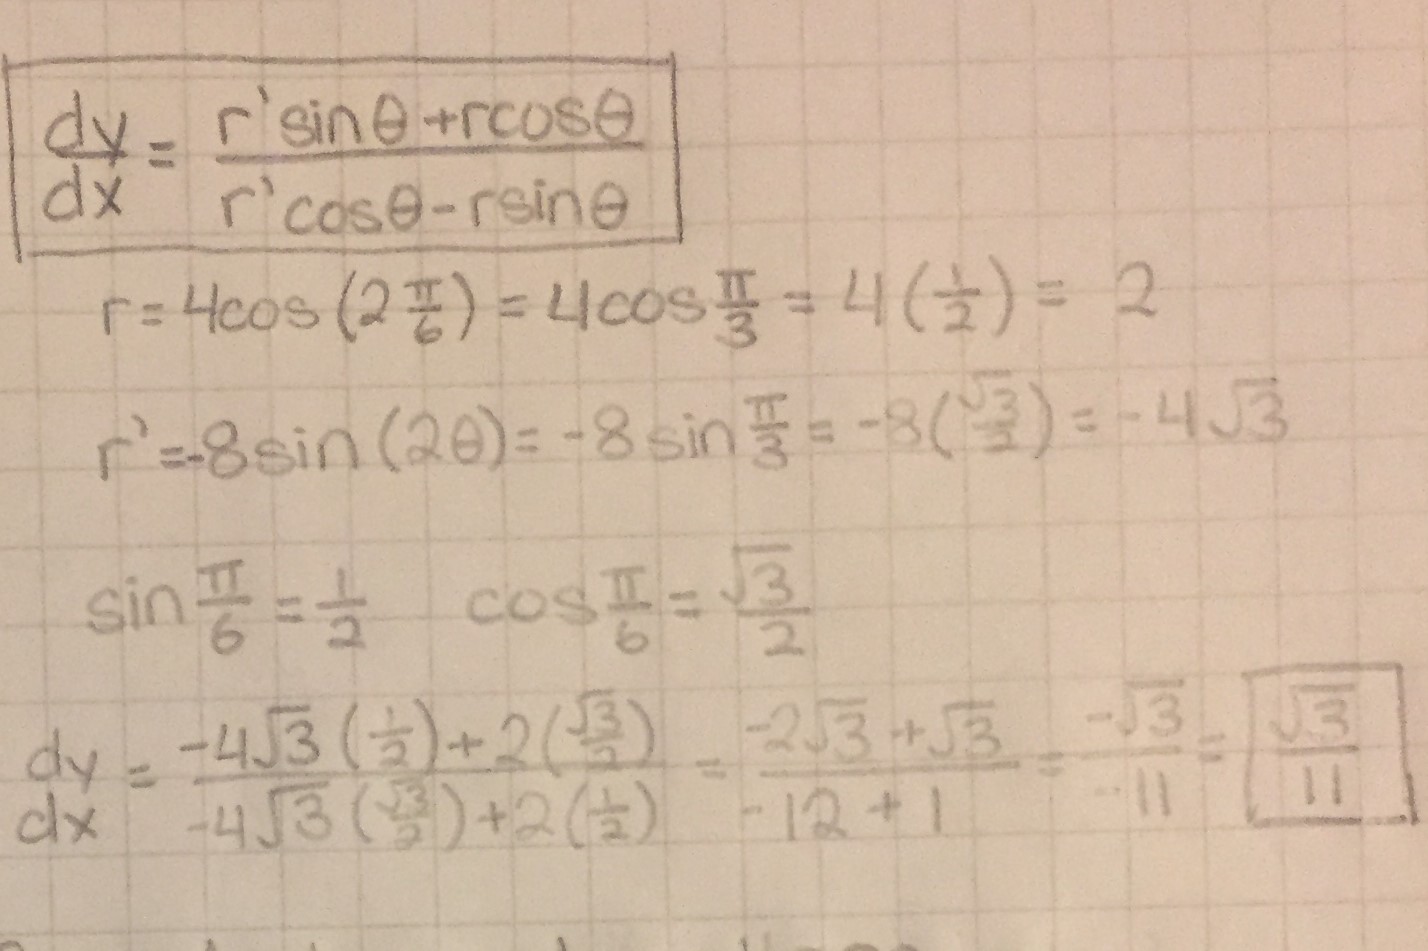 dy/dx = (r'sinθ+rcosθ)/(r'cosθ-rsinθ)
r=4cos(2 π/6)=4cos π/3 = 4(1/2) = 2
r'=-8sin(2θ)=-8sin π/3 = -8(√3/2) = -4√3
sin π/6 = 1/2 cos π/6 = √3/2
dy/dx = (-4√3(1/2)+2(√3/2))/(-4√3(√3/2)+2(1/2)) = (-2√3+√3)/(-12+1) = -√3/-11 = √3/11